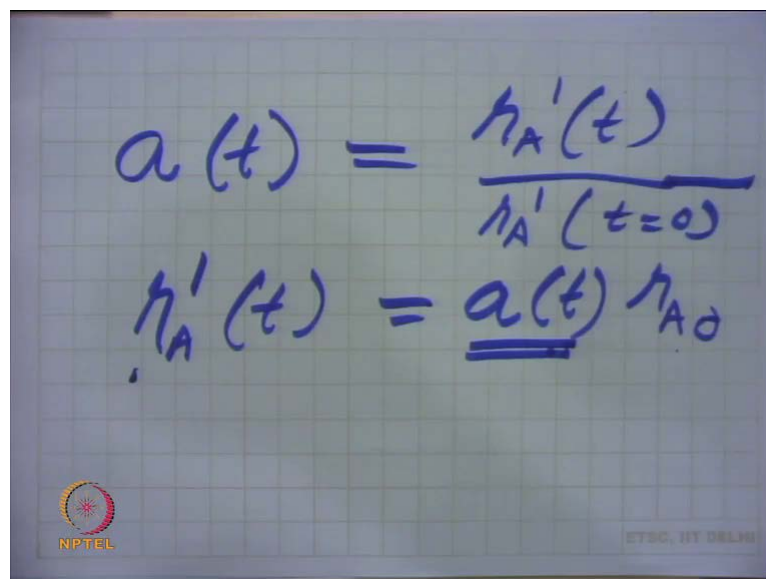 a(t) = r_A'(t) / r_A'(t=0)
r_A'(t) = a(t) r_A0
NPTEL
ETSC, IIT DELHI